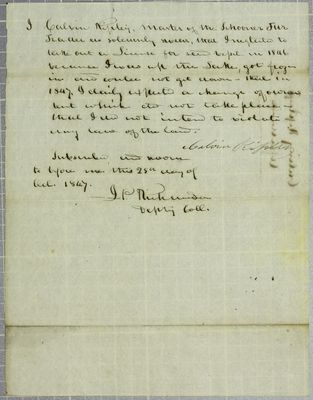 I Calvin Ripley, Master of the Schooner Fur
Trader do solemnly swear, that I neglected to
take out a License for said vessel in 1846
because I was up the Lake, got froze
in and could not get down - that in
1847, I daily expected a change of owners
but which did not take place -
that I did not intend to violate
any laws of the land.
Calvin Ripley
Subscribed and sworn
to before me this 28th day of
Oct. 1847.
Depty Coll.